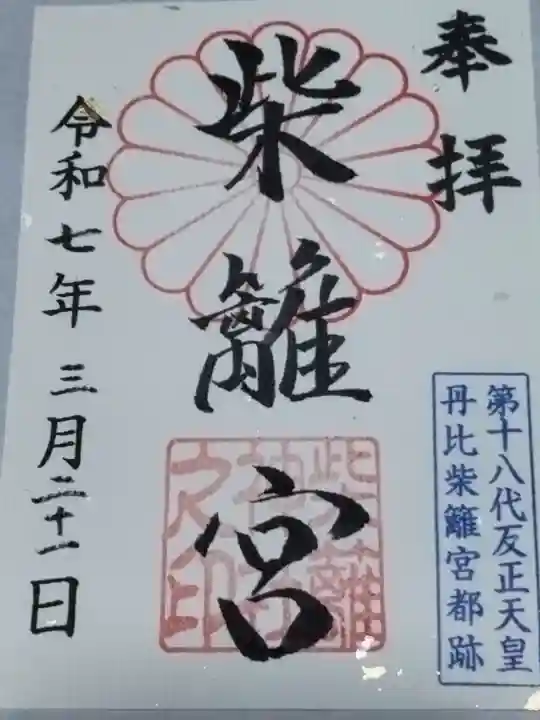 奉拝
第十八代反正天皇
丹比柴籬宮都跡
柴籬宮
令和七年三月二十一日